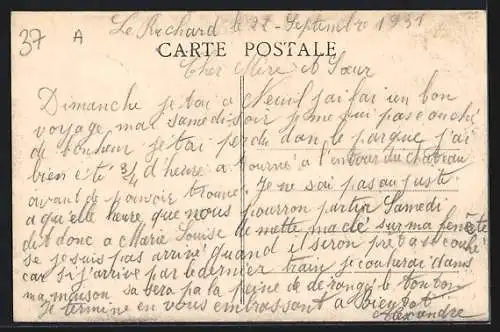 37 A
Le Ruchard le 22 - Septembre 1931
CARTE POSTALE
Cher Mère et Sœur
Dimanche je tai a Neuil jai fai un bon
voyage mai samedi soir je me sui pas couché
de bonheur je tai perdu dan le parque j'ai
bien eté 3/4 d'heure a tourné a l'entour du chateau
avant de pouvoir trouve. Je ne sai pas au juste
a qu'elle heure que nous pourron partir Samedi
dit donc a Marie Louise de mette ma clé sur ma fenêtre
se je suis pas arrivé quand il seron pret a se couché
car si j'arrive par le dernier train je coucherai dans
ma maison sa sera pa la peine de derongé le tonton
je termine en vous embrassant a Bientot
Alexandre